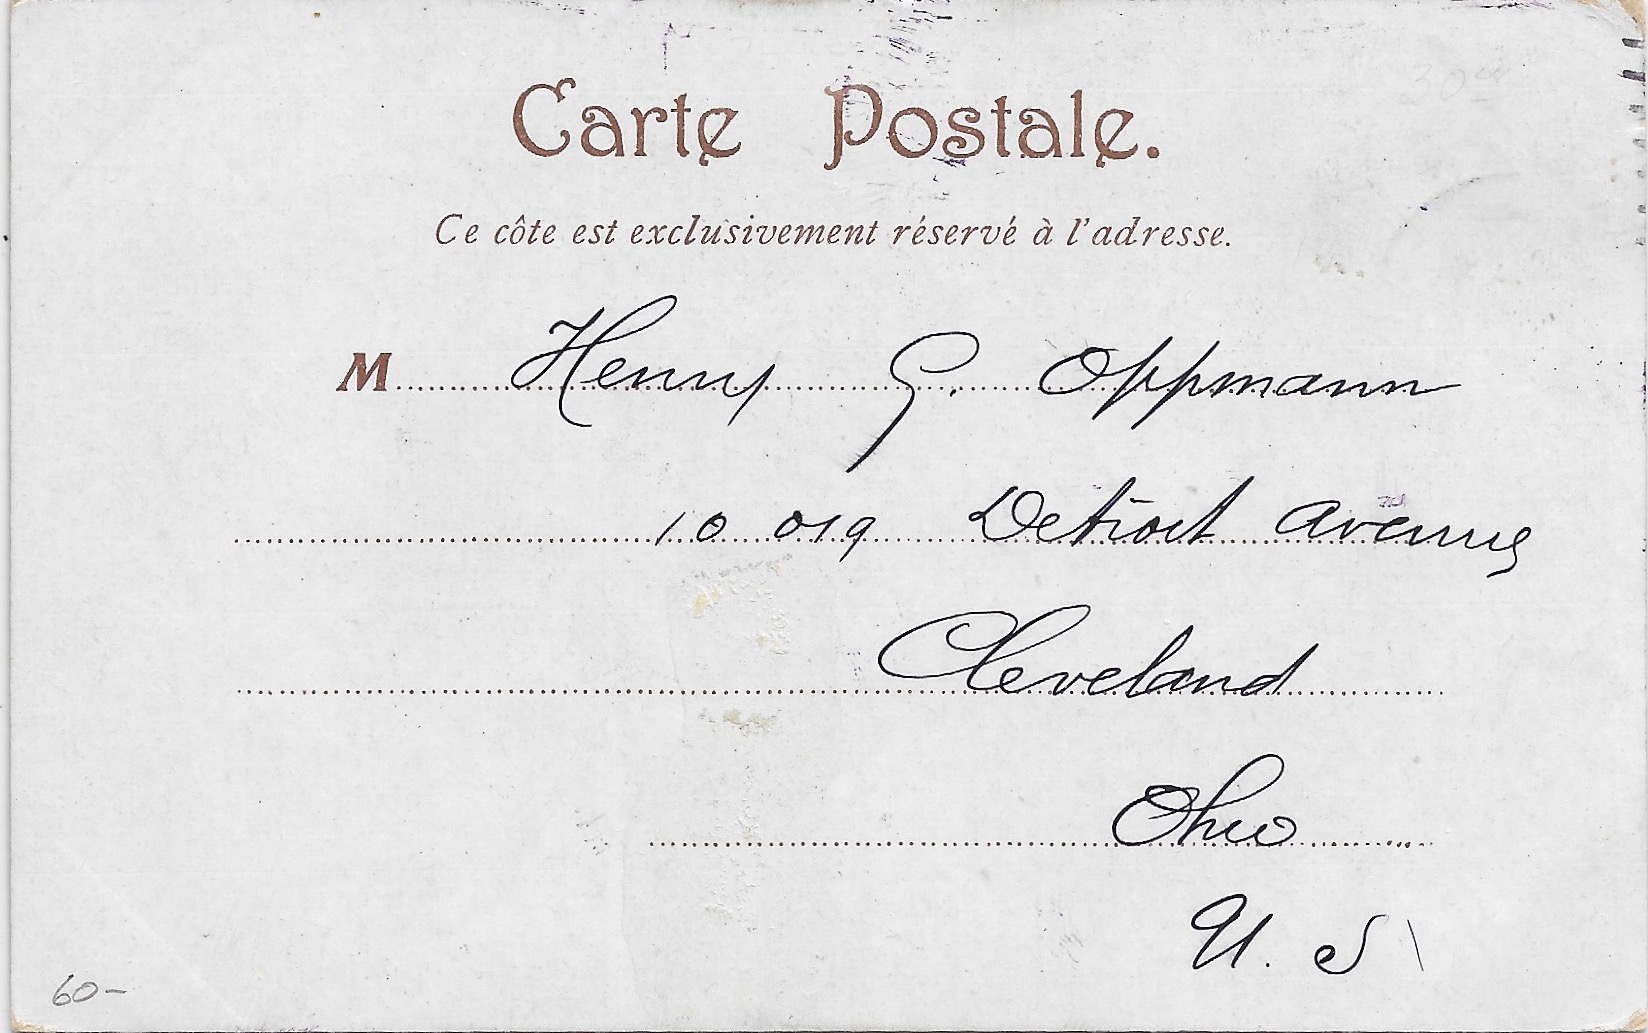 Carte Postale.
Ce côte est exclusivement réservé à l'adresse.
M Henry G. Oppmann
10 019 Detroit Avenue
Cleveland
Ohio
U. S
60-